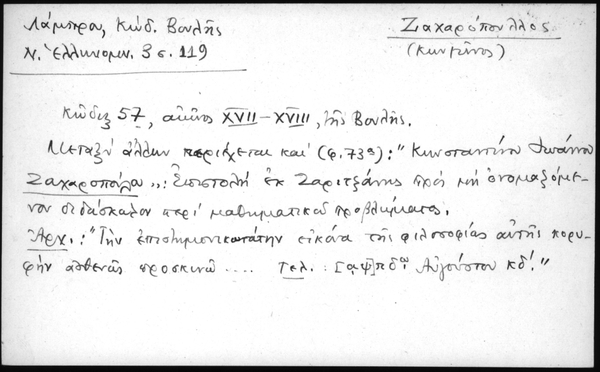 Λάμπρου, Κώδ. Βουλῆς
Ν. Ἑλληνομν. 3 σ. 119
Ζαχαρόπουλλος
(Κων/τῖνος)
Κῶδιξ 57, αἰῶνος XVII-XVIII, τῆς Βουλῆς.
Μεταξὺ ἄλλων περιέχεται καὶ (φ. 73α): "Κωνσταντίνου Ἰωάννου
Ζαχαροπούλου": Ἐπιστολὴ ἐκ Ζαριτζάνης πρὸς μὴ ὀνομαζόμε-
νον διδάσκαλον περὶ μαθηματικοῦ προβλήματος.
Ἀρχ.: "Τὴν ἐπιστημονικωτάτην εἰκόνα τῆς φιλοσοφίας αὐτῆς κορυ-
φὴν ἀσθενῶς προσκυνῶ .... Τελ.: [αψ]πδῳ Αὐγούστου κδ'."